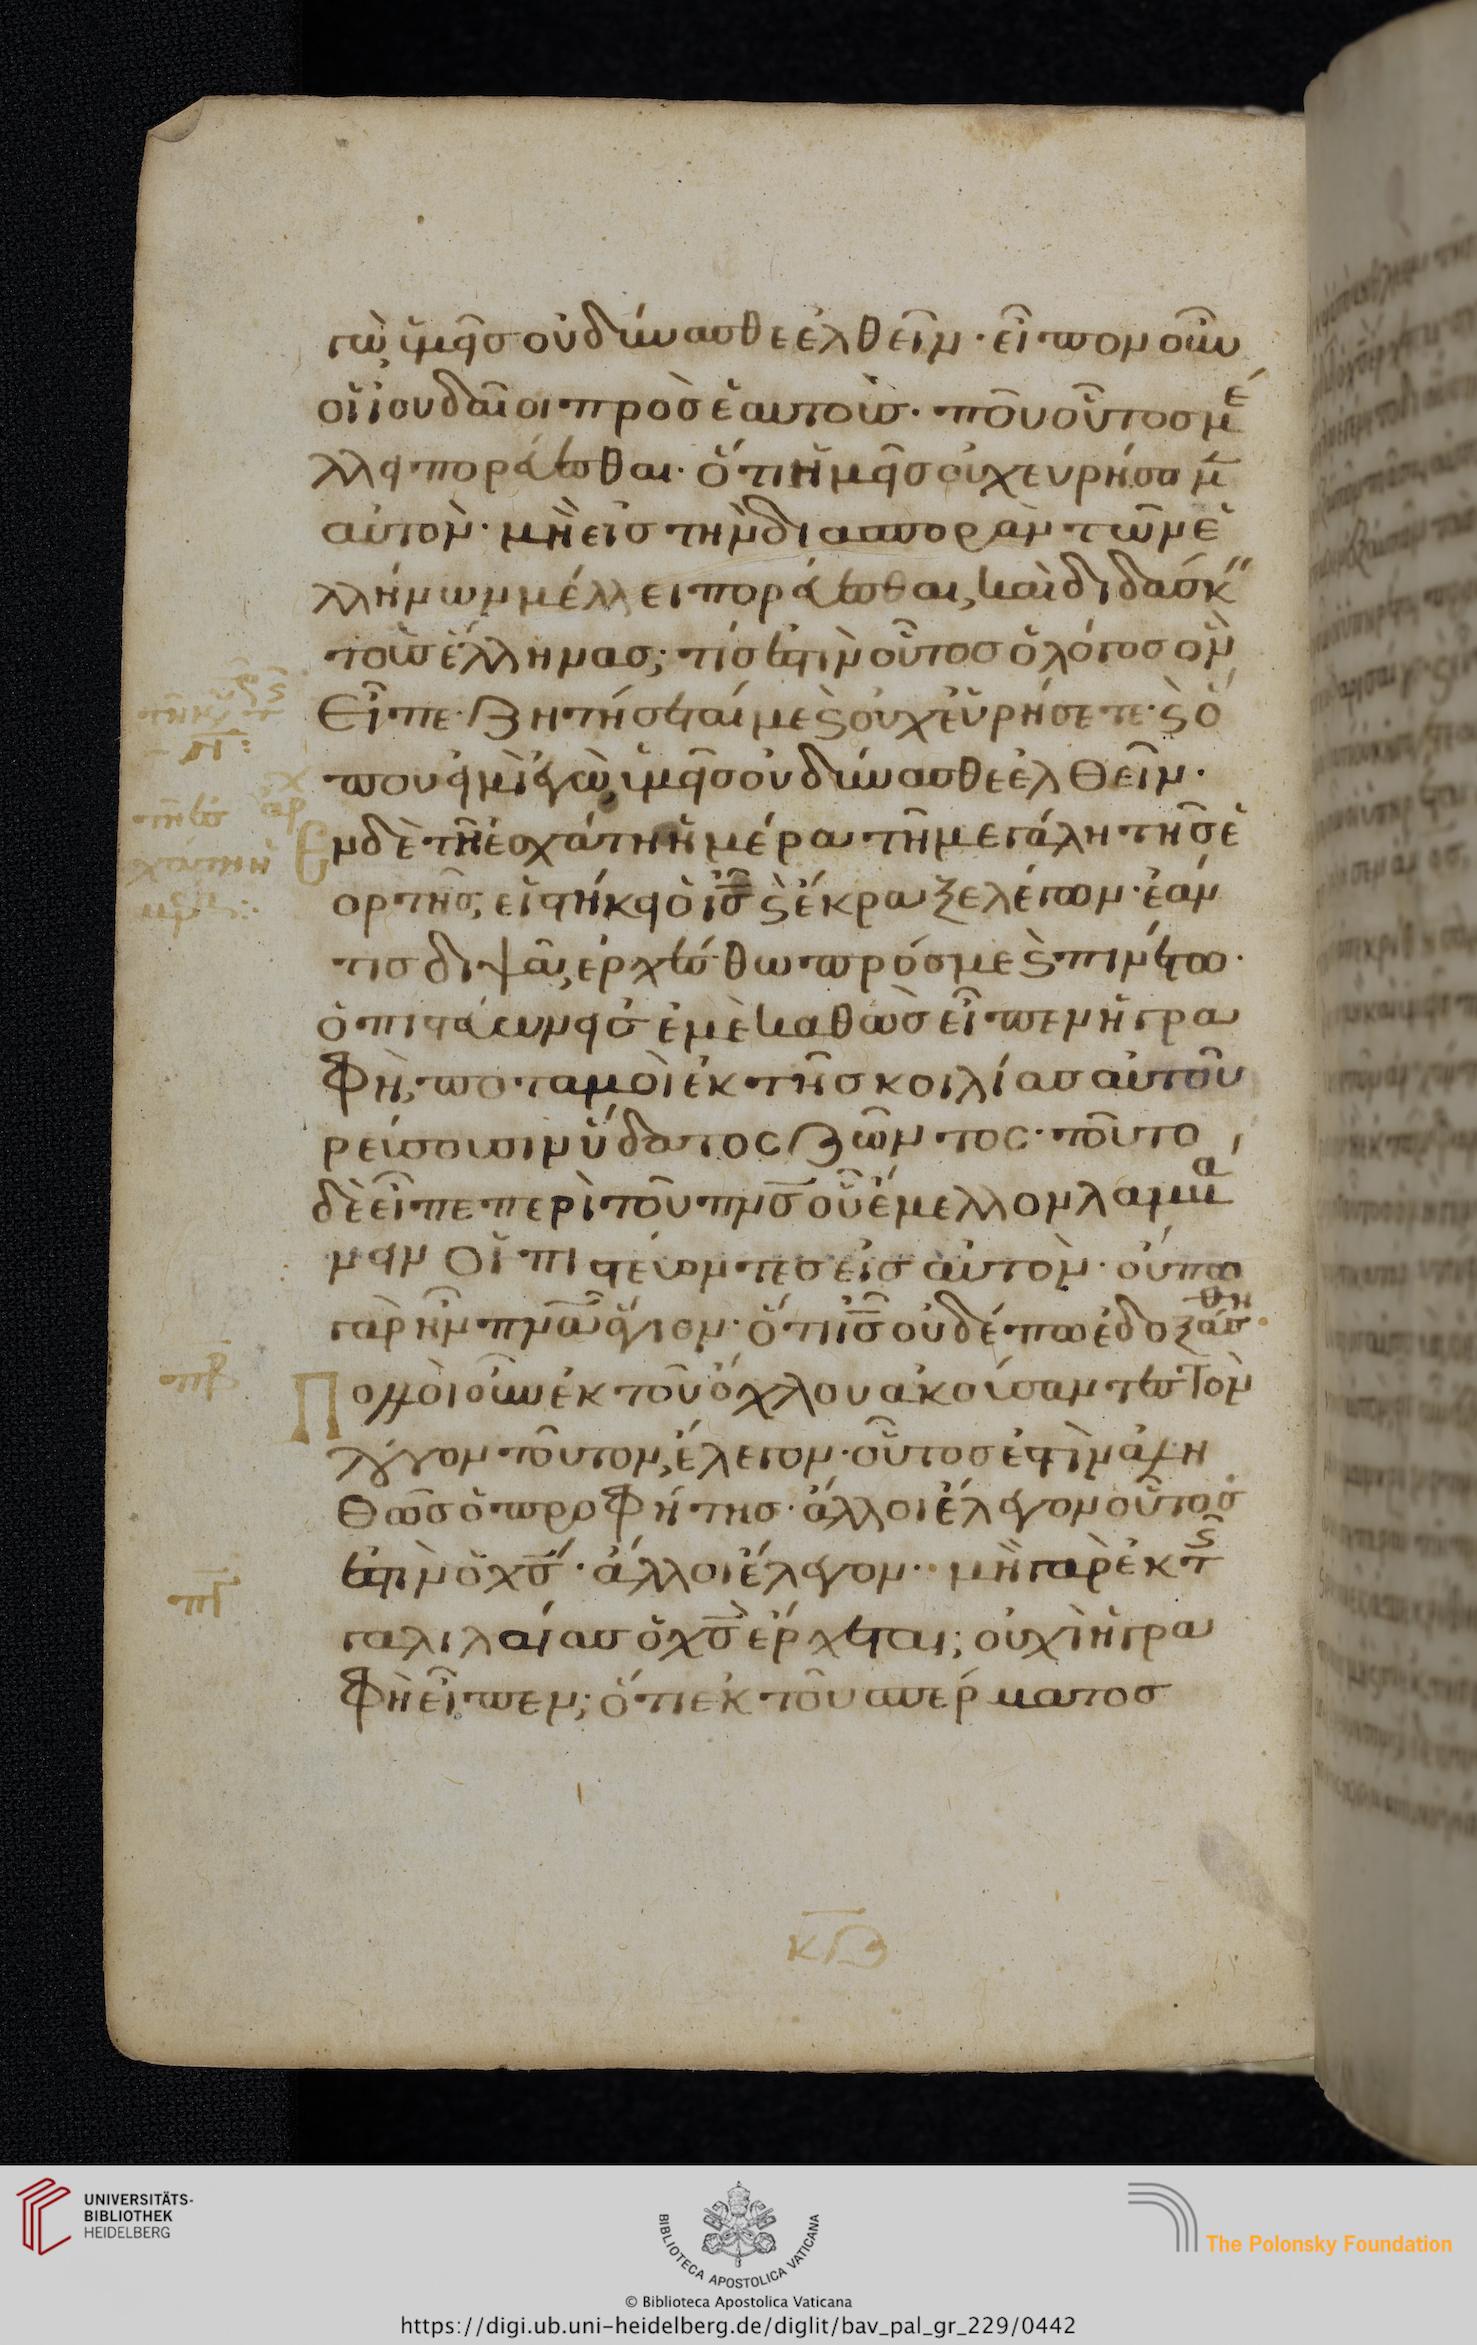 γὼ, ὑμεῖς οὐ δύνασθε ἐλθεῖν· εἶπον οὖν
οἱ ἰουδαῖοι πρὸς ἑαυτούς· ποῦ οὗτος μέ
λλει πορεύεσθαι· ὅτι ἡμεῖς οὐχ εὑρήσομ̅
αὐτόν· μὴ εἰς τὴν διασπορὰν τῶν ἑ
λλήνων μέλλει πορεύεσθαι, καὶ διδάσκ
τοὺς ἕλληνας; τίς ἐστὶν οὗτος ὁ λόγος ὃν
εἶπε· ζητήσεταί με ϗ οὐχ εὑρήσετε· ϗ ὅ
που εἰμὶ ἐγὼ, ὑμεῖς οὐ δύνασθε ἐλθεῖν·
Ἐν δὲ τῆ ἐσχάτη ἡμέρα τῆ μεγάλη τῆς ἑ
ορτῆς, εἱστήκει ὁ ι̅ς̅ ϗ ἔκραξε λέγων· ἐάν
τις διψᾶ, ἐρχέσθω πρός με ϗ πινέτω·
ὁ πιστεύων εἰς ἐμὲ καθὼς εἶπεν ἡ γρα
φὴ, ποταμοὶ ἐκ τῆς κοιλίας αὐτοῦ
ρεύσουσιν ὕδατος ζῶντος· τοῦτο
δὲ εἶπε περὶ τοῦ π̅ν̅ς̅ οὗ ἔμελλον λαμβά
νειν οἱ πιστεύοντες εἰς αὐτόν· οὔπω
γὰρ ἦν π̅ν̅α̅ ἅγιον· ὅτι ι̅ς̅ οὐδέπω ἐδοξάσθη·
πζ
Πολλοὶ οὖν ἐκ τοῦ ὄχλου ἀκούσαντες τὸν
λόγον τοῦτον, ἔλεγον· οὗτος ἐστὶν ἀλη
θῶς ὁ προφήτης· ἄλλοι ἔλεγον οὗτος
ἐστὶν ὁ χ̅ς̅· ἄλλοι ἔλεγον· μὴ γὰρ ἐκ τῆς
γαλιλαίας ὁ χ̅ς̅ ἔρχεται; οὐχὶ ἡ γρα
φὴ εἶπεν; ὅτι ἐκ τοῦ σπέρματος
κζ
UNIVERSITÄTS-
BIBLIOTHEK
HEIDELBERG
BIBLIOTECA APOSTOLICA VATICANA
The Polonsky Foundation
© Biblioteca Apostolica Vaticana
https://digi.ub.uni-heidelberg.de/diglit/bav_pal_gr_229/0442